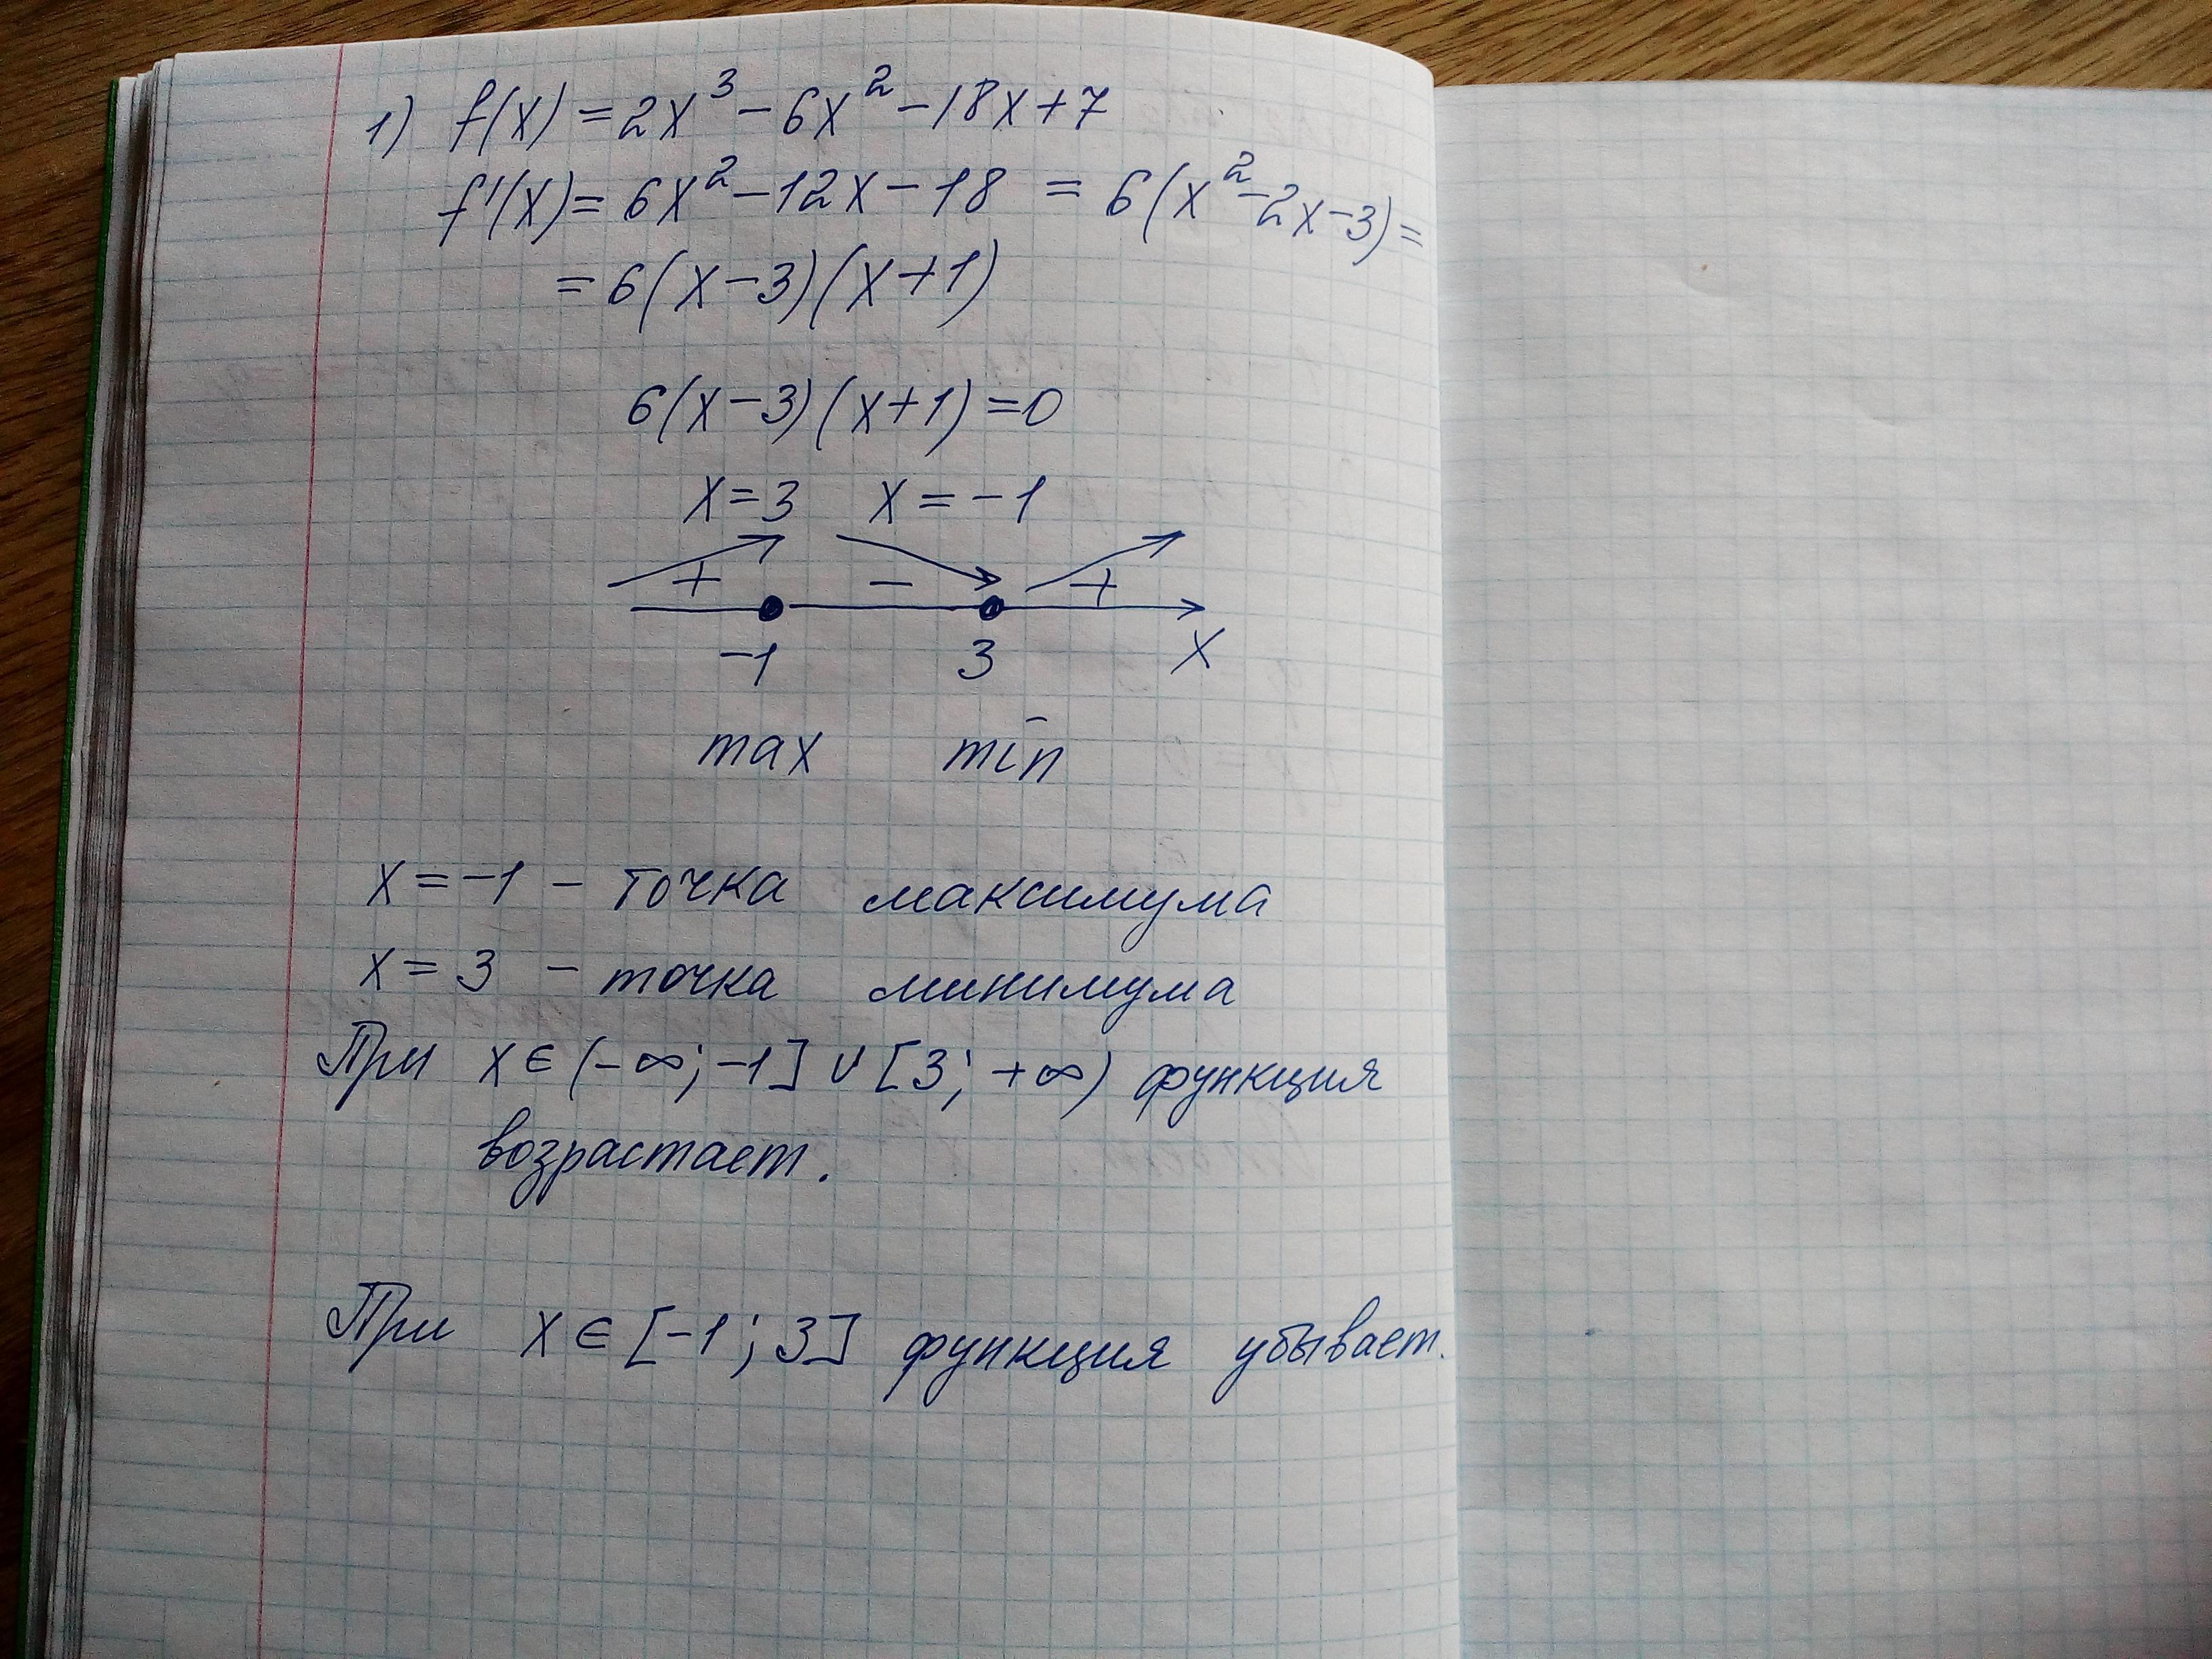 1) f(x) = 2x³ - 6x² - 18x + 7
f'(x) = 6x² - 12x - 18 = 6(x² - 2x - 3) =
= 6(x - 3)(x + 1)
6(x - 3)(x + 1) = 0
x = 3 x = -1
+ - +
-1 3 x
max min
x = -1 - точка максимума
x = 3 - точка минимума
При x ∈ (-∞; -1] ∪ [3; +∞) функция
возрастает.
При x ∈ [-1; 3] функция убывает.